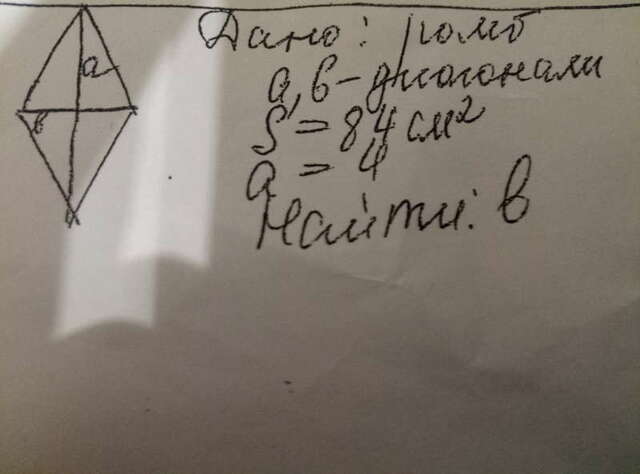 a
в
Дано: ромб
a, в - диогонали
S = 84 см²
a = 4
Найти: в